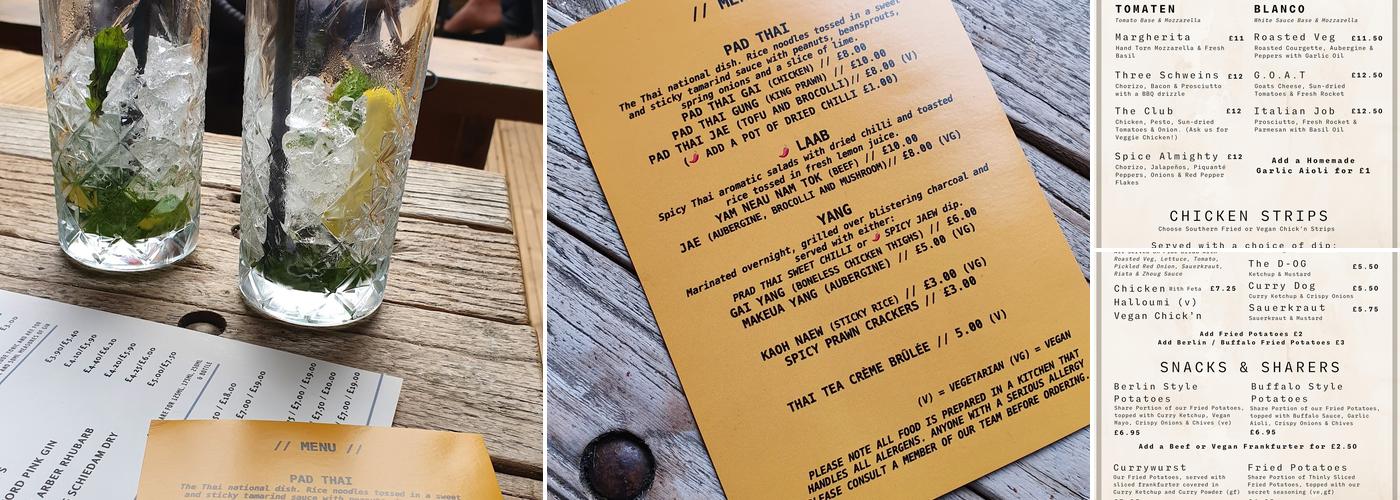 £3.00
£3.90/£5.40
£4.10/£5.90
£4.40/£6.20
£4.20/£5.90
£4.25/£6.00
£5.00/£7.50
& BOTTLE
/ £18.00
£7.00 / £19.00
£7.00 / £19.00
£7.50 / £20.00
£7.00 / £19.00
PINK GIN
ARBER RHUBARB
SCHIEDAM DRY
// MENU //
PAD THAI
The Thai national dish. Rice noodles tossed in a sweet
and sticky tamarind sauce with peanuts, beansprouts,
PAD THAI
The Thai national dish. Rice noodles tossed in a sweet
and sticky tamarind sauce with peanuts, beansprouts,
spring onions and a slice of lime.
PAD THAI GAI (CHICKEN) // £8.00
PAD THAI GUNG (KING PRAWN) // £10.00
PAD THAI JAE (TOFU AND BROCOLLI)// £8.00 (V)
(🌶 ADD A POT OF DRIED CHILLI £1.00)
🌶 LAAB
Spicy Thai aromatic salads with dried chilli and toasted
rice tossed in fresh lemon juice.
YAM NEAU NAM TOK (BEEF) // £10.00
JAE (AUBERGINE, BROCOLLI AND MUSHROOM)// £8.00 (VG)
YANG
Marinated overnight, grilled over blistering charcoal and
served with either:
PRAD THAI SWEET CHILLI or 🌶 SPICY JAEW dip.
GAI YANG (BONELESS CHICKEN THIGHS) // £6.00
MAKEUA YANG (AUBERGINE) // £5.00 (VG)
KAOH NAEW (STICKY RICE) // £3.00 (VG)
SPICY PRAWN CRACKERS // £3.00
THAI TEA CRÈME BRÛLÉE // 5.00 (V)
(V) = VEGETARIAN (VG) = VEGAN
PLEASE NOTE ALL FOOD IS PREPARED IN A KITCHEN THAT
HANDLES ALL ALERGENS. ANYONE WITH A SERIOUS ALLERGY
PLEASE CONSULT A MEMBER OF OUR TEAM BEFORE ORDERING.
TOMATEN
Tomato Base & Mozzarella
Margherita £11
Hand Torn Mozzarella & Fresh
Basil
Three Schweins £12
Chorizo, Bacon & Prosciutto
with a BBQ drizzle
The Club £12
Chicken, Pesto, Sun-dried
Tomatoes & Onion. (Ask us for
Veggie Chicken!)
Spice Almighty £12
Chorizo, Jalapeños, Piquanté
Peppers, Onions & Red Pepper
Flakes
BLANCO
White Sauce Base & Mozzarella
Roasted Veg £11.50
Roasted Courgette, Aubergine &
Peppers with Garlic Oil
G.O.A.T £12.50
Goats Cheese, Sun-dried
Tomatoes & Fresh Rocket
Italian Job £12.50
Prosciutto, Fresh Rocket &
Parmesan with Basil Oil
Add a Homemade
Garlic Aioli for £1
CHICKEN STRIPS
Choose Southern Fried or Vegan Chick'n Strips
Served with a choice of dip:
Roasted Veg, Lettuce, Tomato,
Pickled Red Onion, Sauerkraut,
Riata & Zhoug Sauce
Chicken With Feta £7.25
Halloumi (v)
Vegan Chick'n
The D-OG £5.50
Ketchup & Mustard
Curry Dog £5.50
Curry Ketchup & Crispy Onions
Sauerkraut £5.75
Sauerkraut & Mustard
Add Fried Potatoes £2
Add Berlin / Buffalo Fried Potatoes £3
SNACKS & SHARERS
Berlin Style
Potatoes
Share Portion of our Fried Potatoes,
topped with Curry Ketchup, Vegan
Mayo, Crispy Onions & Chives (ve)
£6.95
Buffalo Style
Potatoes
Share Portion of our Fried Potatoes,
topped with Buffalo Sauce, Garlic
Aioli, Crispy Onions & Chives
£6.95
Add a Beef or Vegan Frankfurter for £2.50
Currywurst
Our Fried Potatoes, served with
sliced Frankfurter covered in
Curry Ketchup and Curry Powder (gf)
Fried Potatoes
Share Portion of Thinly Sliced
Fried Potatoes, topped with our
secret seasoning (ve,gf)